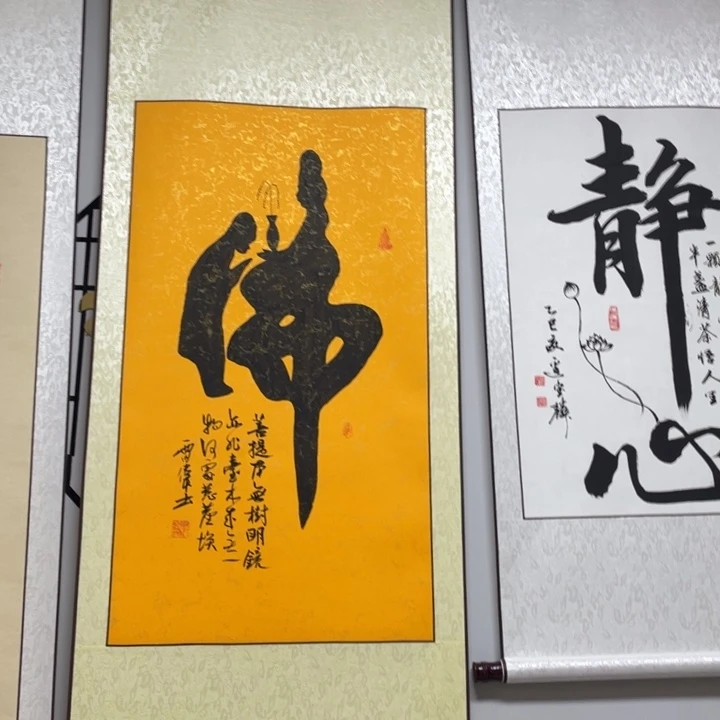 佛
菩提本无樹明鏡
亦非臺本来无一
物何處惹塵埃
静心
一顆
半盏清茶悟人生
乙巳夏